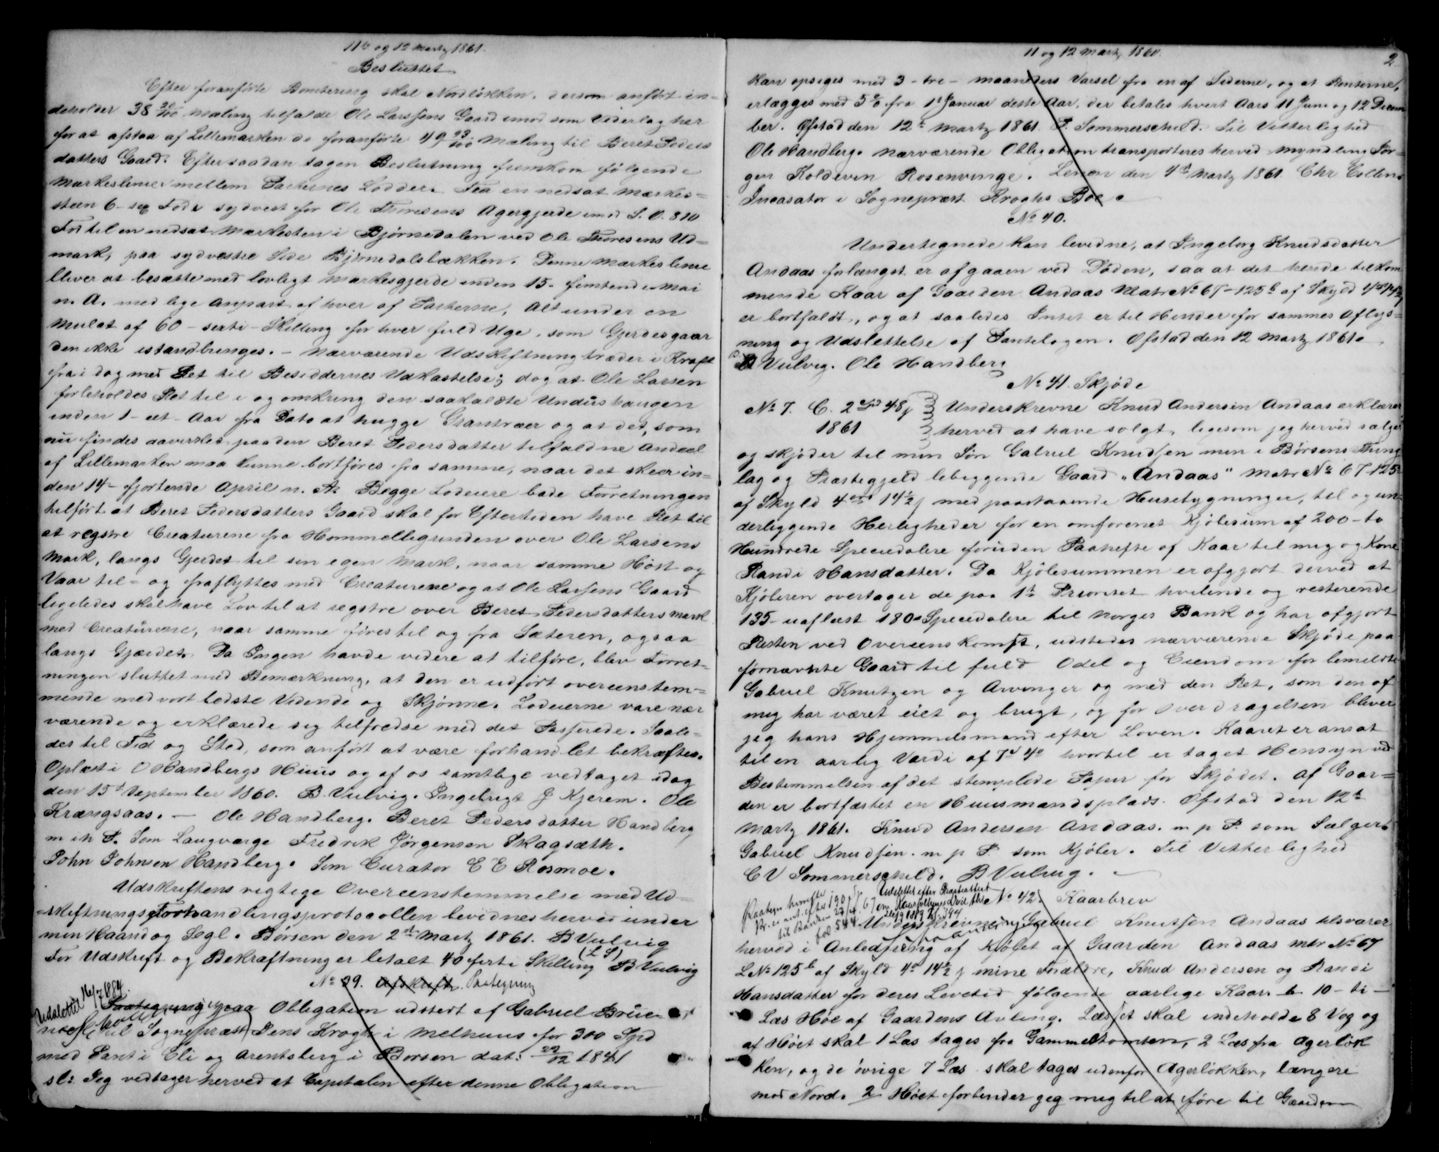 11te og 12 Martz 1861.
Besluttet
Efter foranførte Bonitering skal Nordløkken, dersom anført in-
deholder 38 20/100 Maling tilfalde Ole Larssens Gaard imod som Vederlag her
for at afstaa af Lillemarken de foranførte 49 93/100 Maling til Beret Peders
datters Gaard. Efter saadan tagen Beslutning fremkom følgende
Markeslinie mellem Parternes Lodder. Fra en nedsat Markes-
steen 6 - sex Fod i sydvest for Ole Thoresens Agergjerde imod S. O. 810
Fod til en nedsat Markesten i Bjørnedalen ved Ole Thoresens Ud-
mark, paa sydvestre Side Bjørnedalsbækken. Denne Markeslinie
bliver at besætte med lovligt Markesgjerde inden 15 - femtende Mai
n. A. med lige Anpart af hver af Parterne, Alt under en
Mulct af 60 - sexti - Skilling for hver fuld Uge, som Gjerdesgaar
den ikke istandbringes. - Nærværende Udskiftning træder i Kraft
fra i dag med Ret til Besiddernes Udkastelse; dog at Ole Larsen
forbeholdes Ret til i og omkring den saakaldte Undushaugen
inden 1 - eet - Aar fra Dato at hugge Grantræer og at det, som
nu findes aavirket paa den Beret Pedersdatter tilfaldne Andeel
af Lillemarken maa kunne bortføres fra samme, naar det skeer in-
den 14 - fjortende April n. A. Begge Lodeiere bade Forretningen
tilført at Beret Pedersdatters Gaard skal for Eftertiden have Ret til
at regstre Creaturene fra Hommellegrinden over Ole Larsens
Mark, langs Gjerdet til sin egen Mark, naar samme Høst og
Vaar til- og fraflyttes med Creaturene og at Ole Larsens Gaard
ligeledes skal have Lov til at regstre over Beret Pedersdatters Mark
med Creaturene, naar samme føres til og fra Sæteren, ogsaa
langs Gjærdet. Da Ingen havde videre at tilføre, blev Forret-
ningen sluttet med Bemærkning, at den er udført overeenstem-
mende med vort bedste Vidende og Skjønne. Lodeierne vare nær
værende og erklærede sig tilfredse med det Passerede. Saale-
des til Tid og Sted, som anført at være forhandlet bekræftes.
Oplæst i O Handbergs Huus og af os samtlige vedtaget idag
den 15d September 1860. B Vulvig. Ingebrigt J Kjerem. Ole
Krangsaas. - Ole Handberg. Beret Pedersdatter Handberg
m i h P. Som Laugværge Fredrik Jørgensen Skagsæth.
John Johnsen Handberg. Som Curator E E Rosmoe.
Udskriftens rigtige Overeenstemmelse med Ud-
skiftningsforhandlingsprotocollen bevidnes herved under
min Haand og Segl. Børsen den 2den Martz 1861. B Vulvig
(L S)
For Udskrift og Bekræftning er betalt 40 førti Skilling B Vulvig
No 39. Afskrift Paategning
Udslettet 16/7 1884
paa Obligation udstedt af Gabriel Brue-
til Sognepræst Jens Krogh i Melhuus for 300 Spd
med Pant i Eli og Arentsberg i Børsen dat: 29/12 1841
sl: Jeg vedtager herved at Capitalen efter denne Obligation
11 og 12 Martz 1861.
2
kan opsiges med 3 - tre - maaneders Varsel fra en af Siderne, og at Renterne
erlægges med 5% fra 1st Januar dette Aar, der betales hvert Aars 11 Juni og 12 Decem
ber. Øfstad den 12t Martz 1861. P. Sommerschild. Til Vitterlighed
Ole Handberg. Nærværende Obligation transporteres herved Myndling Jør-
gen Koldevin Rosenvinge. Lenvi den 4d Martz 1861 Chr Collin
Incasator i Sognepræst Kroghs Bøe
No 40.
Undertegnede kan bevidne, at Ingeborg Knudsdatter
Andaas forlængst er afgaaen ved Døden, saa at det hende tilkom
mende Kaar af Gaarden Andaas Matr No 67 - 125b af Skyld 4d 14½
er bortfaldt, og at saaledes Intet er til Hinder for sammes Aflys-
ning og Udslettelse af Pantebogen. Øfstad den 12 Martz 1861.
B Vulvig. Ole Handberg
No 41. Skjøde
No 7. C. 2 48
1861
Underskrevne Knud Andersen Andaas erklærer
herved at have solgt, ligesom jeg herved sælger
og skjøder til min Søn Gabriel Knudsen min i Børsens Thing
lag og Præstegjeld beliggende Gaard "Andaas" Matr No 67 - 125
af Skyld 4 14½ med paastaaende Husebygninger, til og un-
derliggende Herligheder for en omforenet Kjøbesum af 200 - to
Hundrede Speciedalere foruden Paahefte af Kaar til mig og Kone
Randi Hansdatter. Da Kjøbesummen er afgjort derved at
Kjøberen overtager de paa 1t Prioritet hvilende og resterende
135 - uafløst 180 Speciedalere til Norges Bank og har afgjort
Resten ved Overeenskomst, udstedes nærværende Skjøde paa
fornævnte Gaard til fuld Odel og Eiendom for bemeldte
Gabriel Knutzen og Arvinger og med den Ret, som den af
mig har været eiet og brugt, og for Overdragelsen bliver
jeg hans Hjemmelsmand efter Loven. Kaaret er ansat
til en aarlig Værdi af 7d 4o hvortil er taget Hensyn ved
Bestemmelsen af det stemplede Papir for Skjødet. Af Gaar-
den er bortfæstet en Huusmandsplads. Øfstad den 12t
Martz 1861. Knud Andersen Andaas. m p P. som Sælger.
Gabriel Knudsen. m p P som Kjøber. Til Vitterlighed
C V Sommerschild. B Vulvig.
Udslettet efter
No 42. Kaarbrev
Underskrevne Gabriel Knutsen Andaas tilsvarer
herved i Anledning af Kjøbet af Gaarden Andaas mtr No 67
L No 125b af Skyld 4d 14½ mine Foræld­re, Knud Andersen og Randi
Hansdatter for deres Levetid følgende aarlige Kaar 1. 10 - ti -
Læs Høe af Gaardens Avling. Læset skal indeholde 8 Vog og
af Høet skal 1 Læs tages fra Gammeltomten, 2 Læs fra Agerløk
ken, og de øvrige 7 Læs skal tages udenfor Agerløkken, længere
mod Nord. 2 Høet forbinder jeg mig til at føre til Gaarden